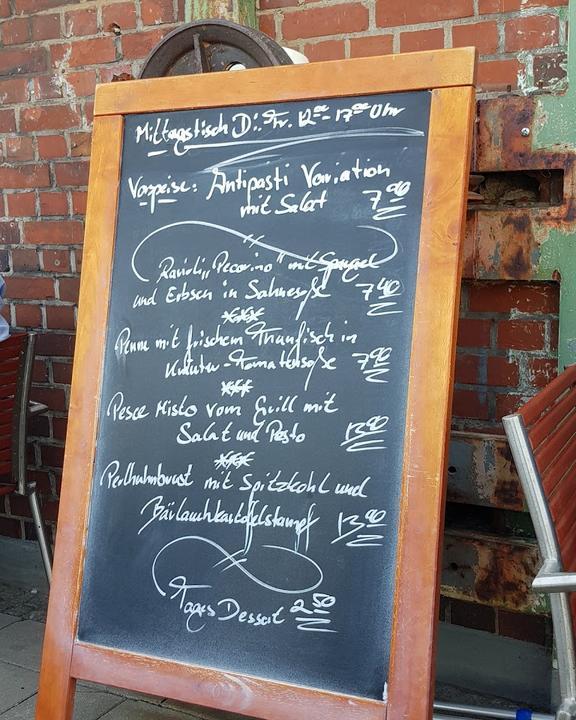 Mittagstisch Di. - Fr. 12⁰⁰ - 17⁰⁰ Uhr
Vorspeise: Antipasti Variation
mit Salat 7⁹⁰
Ravioli "Pecorino" mit Spargel
und Erbsen in Sahnesoße 7⁴⁰
Penne mit frischem Thunfisch in
Kräuter-Tomatensoße 7⁹⁰
Pesce Misto vom Grill mit
Salat und Pesto 13⁹⁰
Perlhuhnbrust mit Spitzkohl und
Bärlauchkartoffelstampf 13⁹⁰
Tages Dessert 2⁵⁰